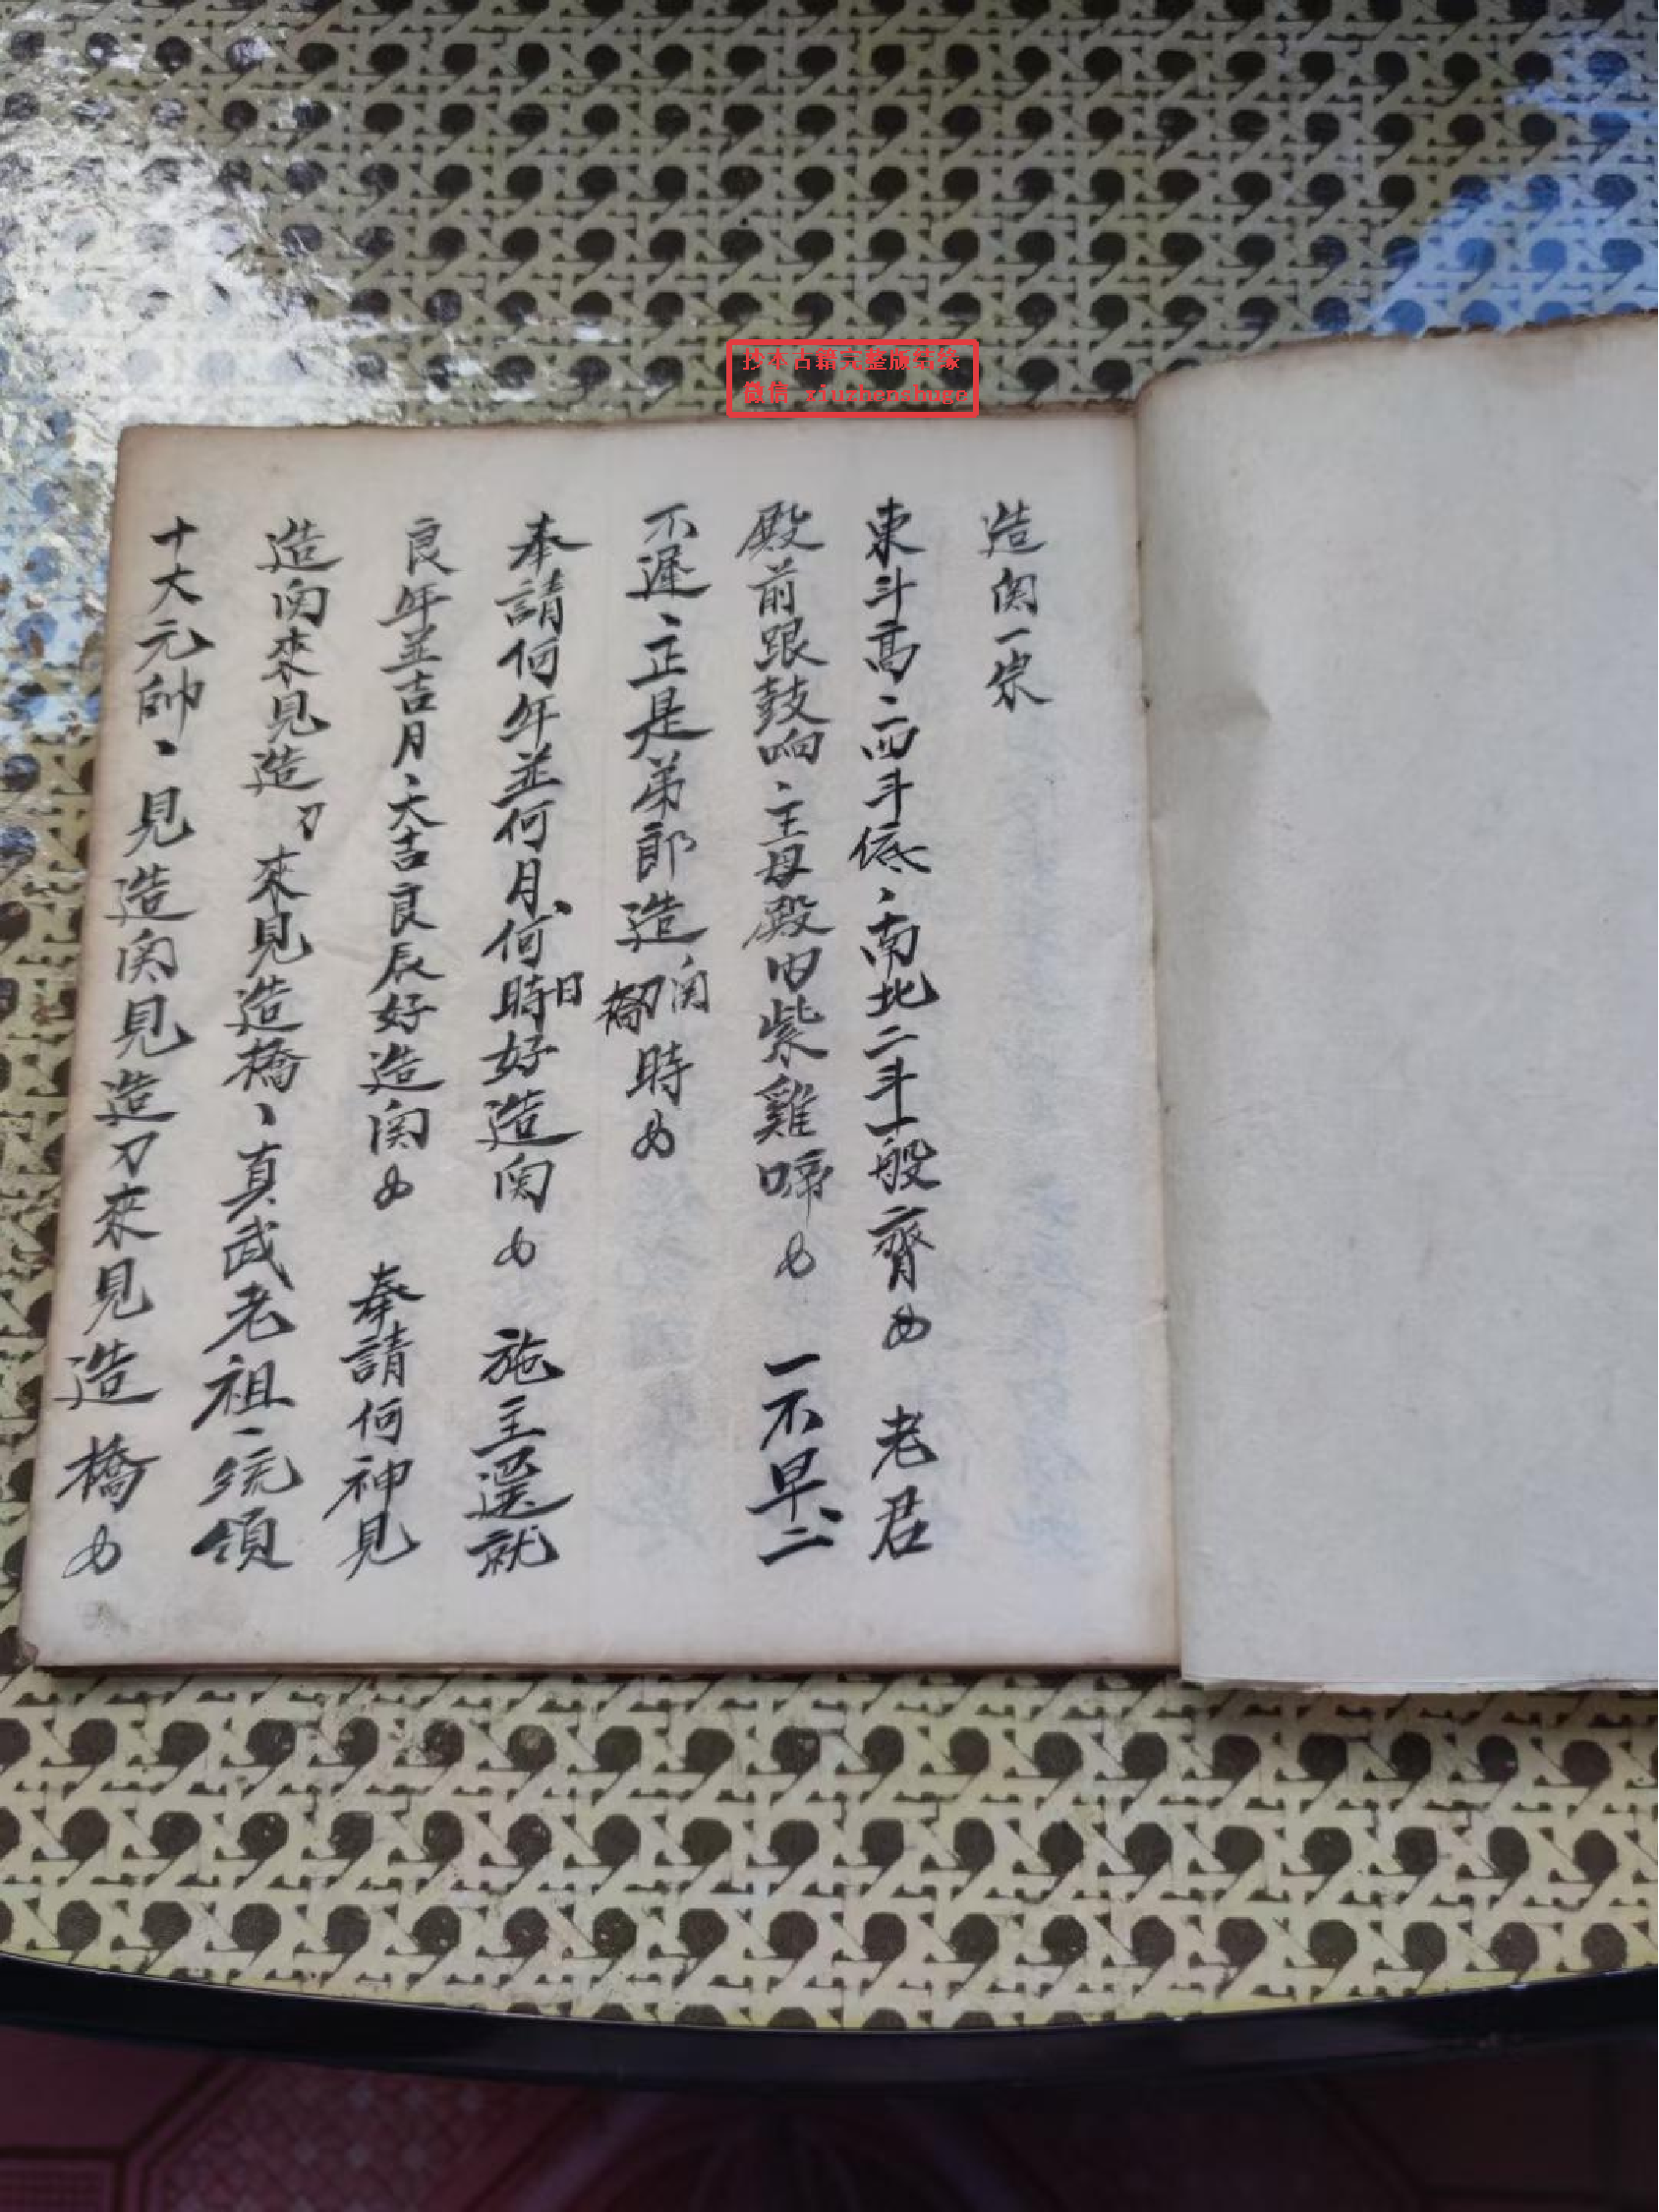 抄本古籍完整版结缘
微信 xiuzhenshuge
造関一宗
東斗高、西斗低、南北二斗一般齊 老君
殿前跟鼓响、主母殿内紫雞啼 一不早、二
不遲、正是弟郎造関刀橋時
奉請何年並何月、何日時好造関 施主選就
良年並吉月、大吉良辰好造関 奉請何神見
造関來見造刀來見造橋、真武老祖、統領
十大元帥、見造関見造刀來見造橋